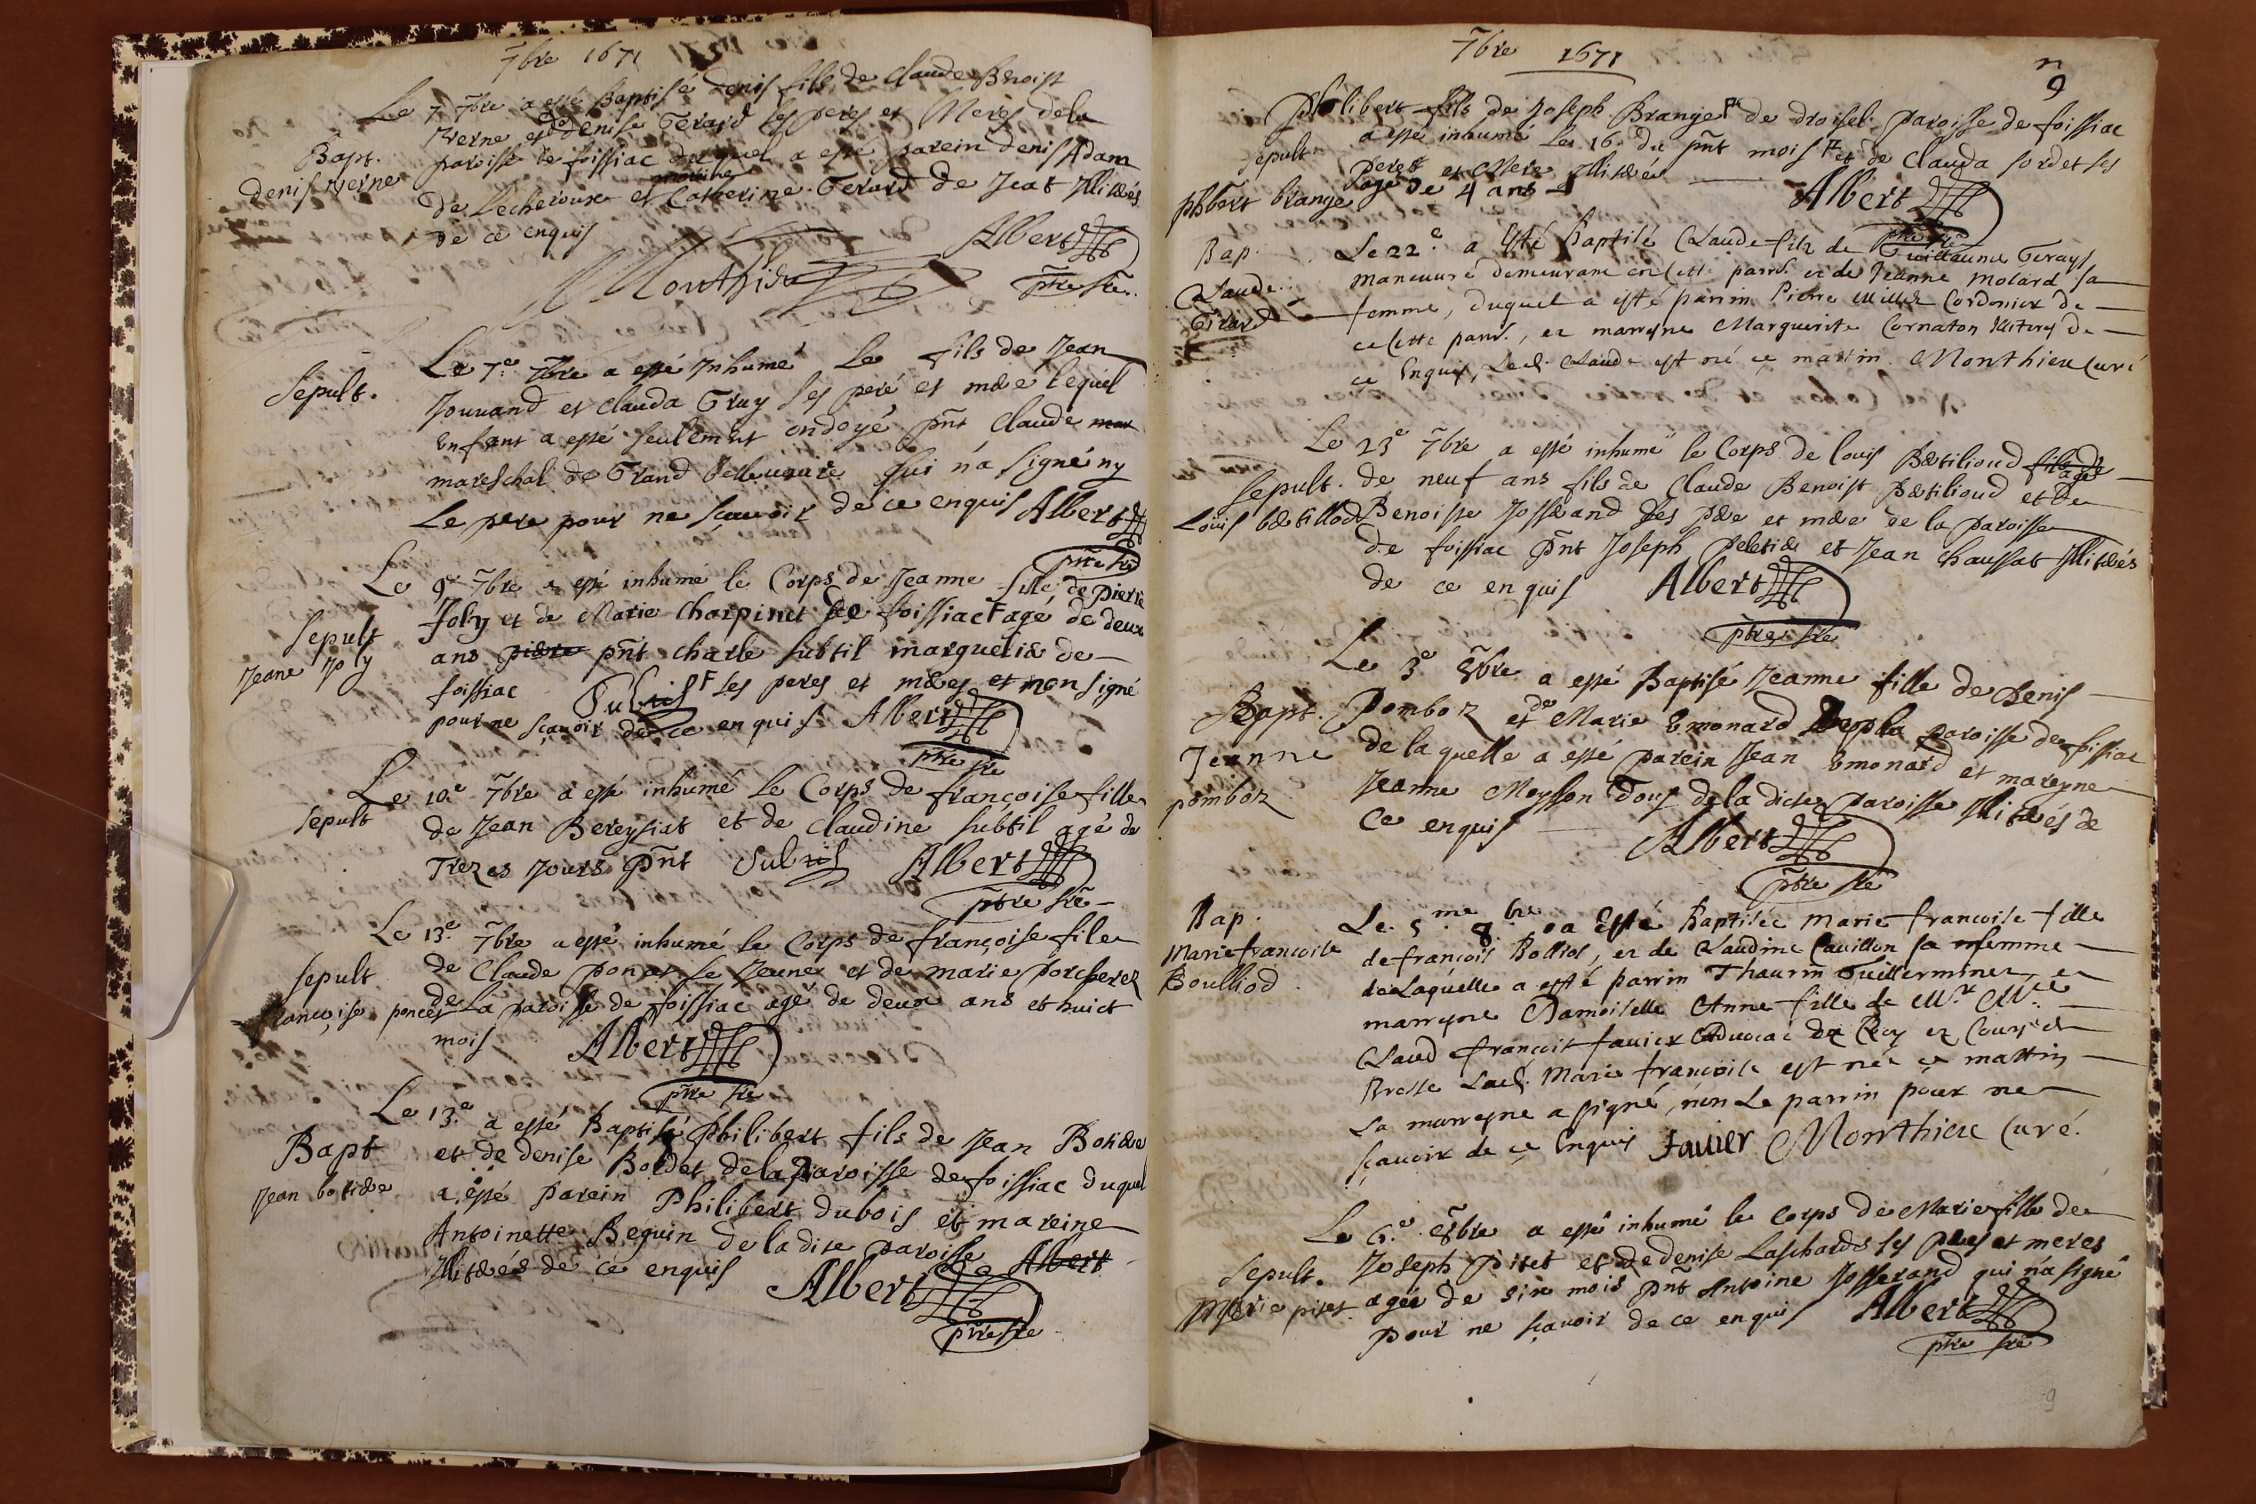 7bre 1671
Le 7 7bre a esté Baptisé denis fils de Claude Benoist
verne et de denise Gerard ses peres et Meres de la
Bapt. paroisse de foissiac duquel a esté parein denis Adam
denis verne
de Lecheroux et mareine Catherine Gerard de Jeat Illitérés
de ce enquis
Albert
Monthieu
ptre
Sepult.
Le 7e 7bre a esté Inhumé Le fils de Jean
Jouuand et Clauda Gruy ses peré et mere lequel
Enfant a esté seulemnt ondoyé pnt Claude mar
mareschal de Grand qui n'a signé ny
Le pere pour ne sçauoir de ce enquis Albert
ptre
Le 9e 7bre a esté inhumé le Corps de Jeanne fille de pierre
Sepult Joly et de Marie Charpinet de foissiac agé de deux
Jeane Joly ans pierre pnt charle subtil marguelié de
foissiac Subtil ses peres et meres et non signé
pour ne sçauoir de ce enquis Albert
ptre
Sepult
Le 10e 7bre a esté inhumé Le Corps de françoise fille
de Jean Bereysiat et de Claudine subtil agé de
Trezes jours pnt Subtil Albert
ptre
Le 13e 7bre a esté inhumé le Corps de françoise file
Sepult de Claude poncet Le Jeune et de marie porcherez
françoise poncet de La paroisse de foissiac agé de deux ans et huict
mois Albert
ptre
Le 13e a esté Baptisé Philibert fils de Jean Botiere
Bapt et de denise Boldet de la paroisse de foissiac duquel
Jean botiere a esté parein Philibert dubois et mareine
Antoinette Beguin de la dite paroisse Albert
Illiterés de ce enquis
Albert
ptre
7bre 1671
9
Philibert fils de Joseph Brange de droisel paroisse de foissiac
Sepult a esté inhumé Le 16e du pnt mois et de Clauda sordet ses
peres et Mere Illiteré
phbert brange agé de 4 ans Albert
ptre
Bap. Le 22e a Esté Baptisé Claude filz de Guillaume Gerard
Claude Manuure demeurant en cette parr. et de Jeanne Molard sa
Girard femme, duquel a esté parrin Pierre Millet Cordonier de
cette parr., et marreyne Marguerite Cornaton Illiterez de
ce Enquis, Led. Claude est né ce matin. Monthieu Curé
Le 23e 7bre a esté inhumé le Corps de louis Bertiliond fils agé
Sepult. de neuf ans fils de Claude Benoist Bertiliond et de
Louis bertillod Benoiste Josserand ses pere et mere de la paroisse
de foissiac pnt Joseph peletier et Jean chaussat Illiterés
de ce enquis Albert
ptre
Le 3e 8bre a esté Baptisé Jeanne fille de Denis
Bapt. Pomboz et de Marie Emonard de la paroisse de foissiac
Jeanne de laquelle a esté parein Jean Emonard et mareyne
pomboz Jeanne Moysson Tous de la dicte paroisse Illiterés de
Ce enquis Albert
ptre
Bap. Le 5me 8bre a Esté Baptisée Marie francoise fille
Marie francoise de françois Bolliod, et de Claudine Cauillon sa femme
Boulliod de Laquelle a esté parrin Thaurin Guillerminet, et
marreyne Damoiselle Anne fille de Mr Me
Claud francois fauier Aduocat du Roy ez Cours de
Bresse Lad. Marie francoise est née ce mattin
La marreyne a signé, non Le parrin pour ne
sçauoir de ce Enquis Fauier Monthieu Curé.
Le 6e 8bre a esté inhumé le Corps de Marie fille de
Sepult. Joseph pitet et de denise Laschardes ses peres et meres
Marie pitet agée de six mois pnt Antoine Josserand qui n'a signé
pour ne sçauoir de ce enquis Albert
ptre
9